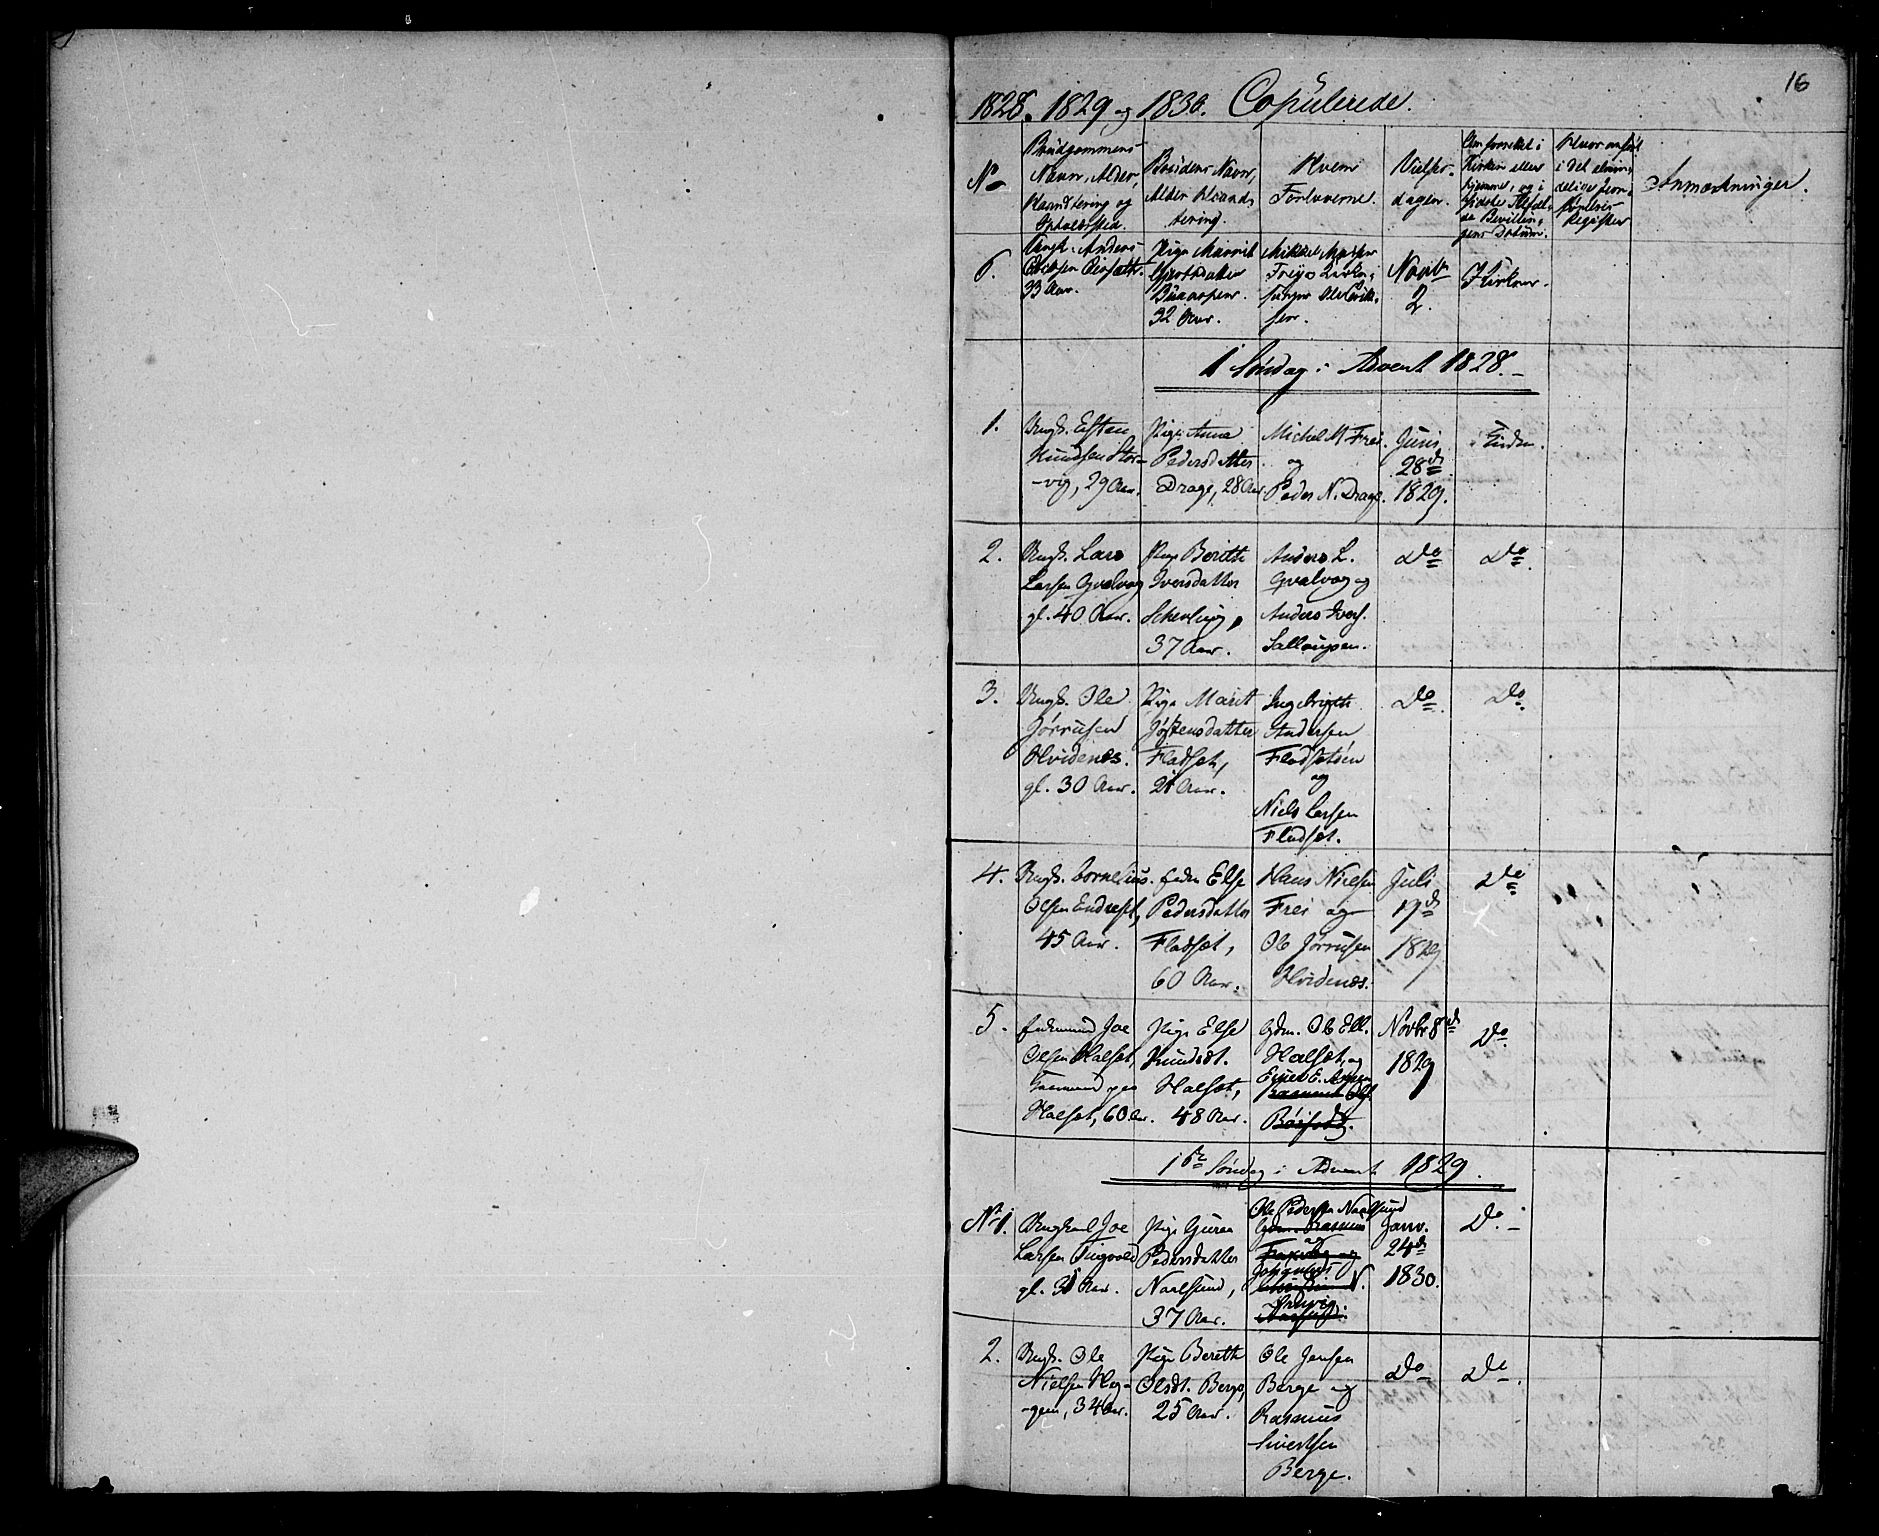 16
1828. 1829 og 1830. Copulerede.
No
Brudgommens
Navn, Alder,
Haandtering og
Opholdssted.
Brudens Navn,
Alder Haand-
tering.
Hvem
Forloverne.
Vielses-
dagen.
Om forrettet i
Kirken eller
hjemme, og i
sidste Tilfæl-
de Bevillin-
gens Datum.
Hvor anført
i det almin-
delige Jevn-
førelses-
Register
Anmærkninger.
6.
Ungk. Anders
33 Aar.
Pige Marrit
32 Aar.
Novbr
2.
Kirken.
1 Søndag i Advent 1828.
1.
Ungk. Esten
Knudsen Stor-
-vig, 29 Aar.
Pige Anne
Pedersdatter
Drage, 28 Aar.
Michel M Frei
og
Peder N. Drage.
Juni
28de
1829.
Kirken.
2.
Ungk. Lars
Larsen Qvalvag
gl. 40 Aar.
Pige Berith
Iversdatter
37 Aar.
Anders L.
Qvalvag og
Anders Ivers.
Do
Do
3.
Ungk. Ole
Jørrusen
Hvidenæs.
gl. 30 Aar.
Pige Marit
Jøstensdatter
Fladset,
21 Aar.
Ingebrigth
Andersen
Fladsetøen
og
Niels Larsen
Fladset.
Do
Do
4.
Ungk. Cornelius
Olsen Endreset,
45 Aar.
Enken Else
Pedersdatter
Fladset,
60 Aar.
Hans Nielsen
Frei og
Ole Jørrusen
Hvidenæs.
Juli
19de
1829
Do
5.
Enkemand Joe
Olsen Halset,
Gaarmand paa
Halset, 60 Aar.
Pige Else
Knudsdt.
Halset,
48 Aar.
Gdm. Ole Ell.
Halset, og
Novbr 8de
1829
Do
1ste Søndag i Advent 1829.
No 1.
Ungkarl Joe
Larsen Tingvold
gl. 31 Aar.
Pige Guren
Pedersdatter
Naalsund,
37 Aar.
Ole Pedersen Naalsund
Gdm. Rasmus
og
Janv.
24de
1830.
Do
2.
Ungk. Ole
Nielsen Hag-
-gem, 34 Aar.
Pige Bereth
Olsdt. Berge,
25 Aar.
Ole Jensen
Berge og
Rasmus
Sivertsen
Berge.
Do
Do